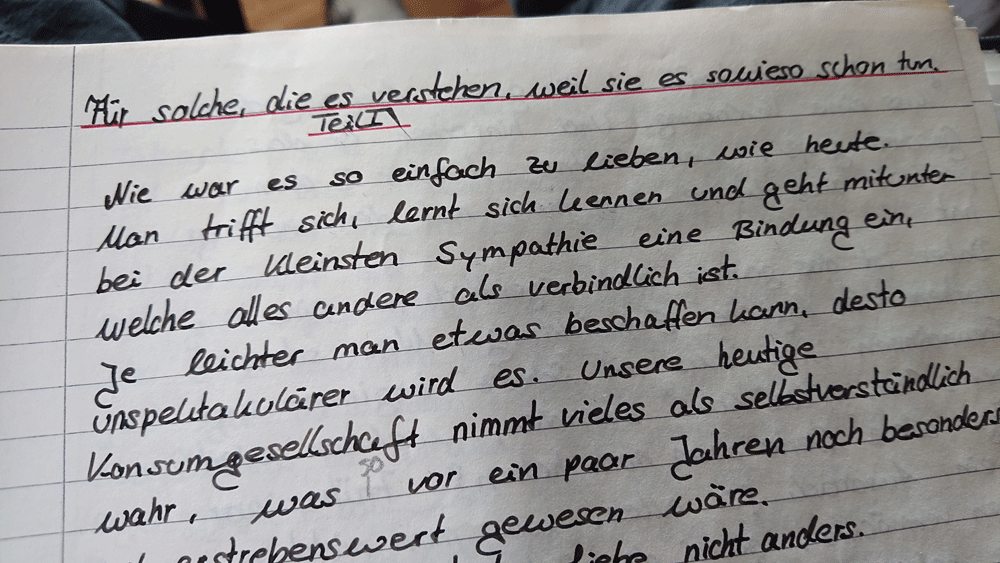 Für solche, die es verstehen, weil sie es sowieso schon tun.
Teil I
Nie war es so einfach zu lieben, wie heute.
Man trifft sich, lernt sich kennen und geht mitunter
bei der kleinsten Sympathie eine Bindung ein,
welche alles andere als verbindlich ist.
Je leichter man etwas beschaffen kann, desto
unspektakulärer wird es. Unsere heutige
Konsumgesellschaft nimmt vieles als selbstverständlich
wahr, was so vor ein paar Jahren noch besonders
gewesen wäre.
nicht anders.